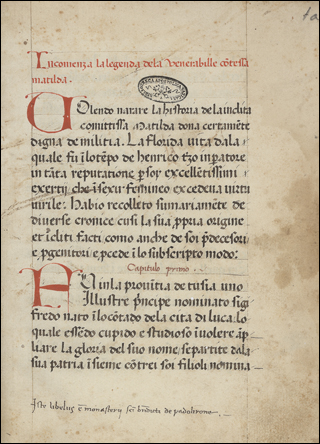 Incomenza la legenda dela Venerabille cōtessa
matilda.
VOlendo narare la historia de la inclita
comittissa Matilda dona certamēte
digna de militia. La florida vita dala
quale fu ī lo tēpo de henrico tzo inperatore
in tāta reputatione p soy excellētissimi
exertii che ī sexu femineo excedeua virtu
uirile: Habio recolleto sumariamēte de
diuerse cronice cusi la sua ppria origine
et icliti facti como anche de soi pdecesori
e pgenitori e pcede ī lo subscripto modo:
Capitulo primo.
FU in la prouītia de tusia uno
Illustre prīcipe nominato sigi
fredo nato ī lo cōtado dela cita di luca. lo
quale essēdo cupido e studioso ī uolere āp
liare la gloria del suo nome se partite dala
sua patria ī sieme cō trei soi filioli nomina
Iste libelus ē monasterij sc̄i bn̄dicti de padolirono.